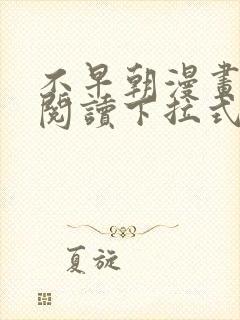 不早朝漫畫
閱讀下拉式
夏旋